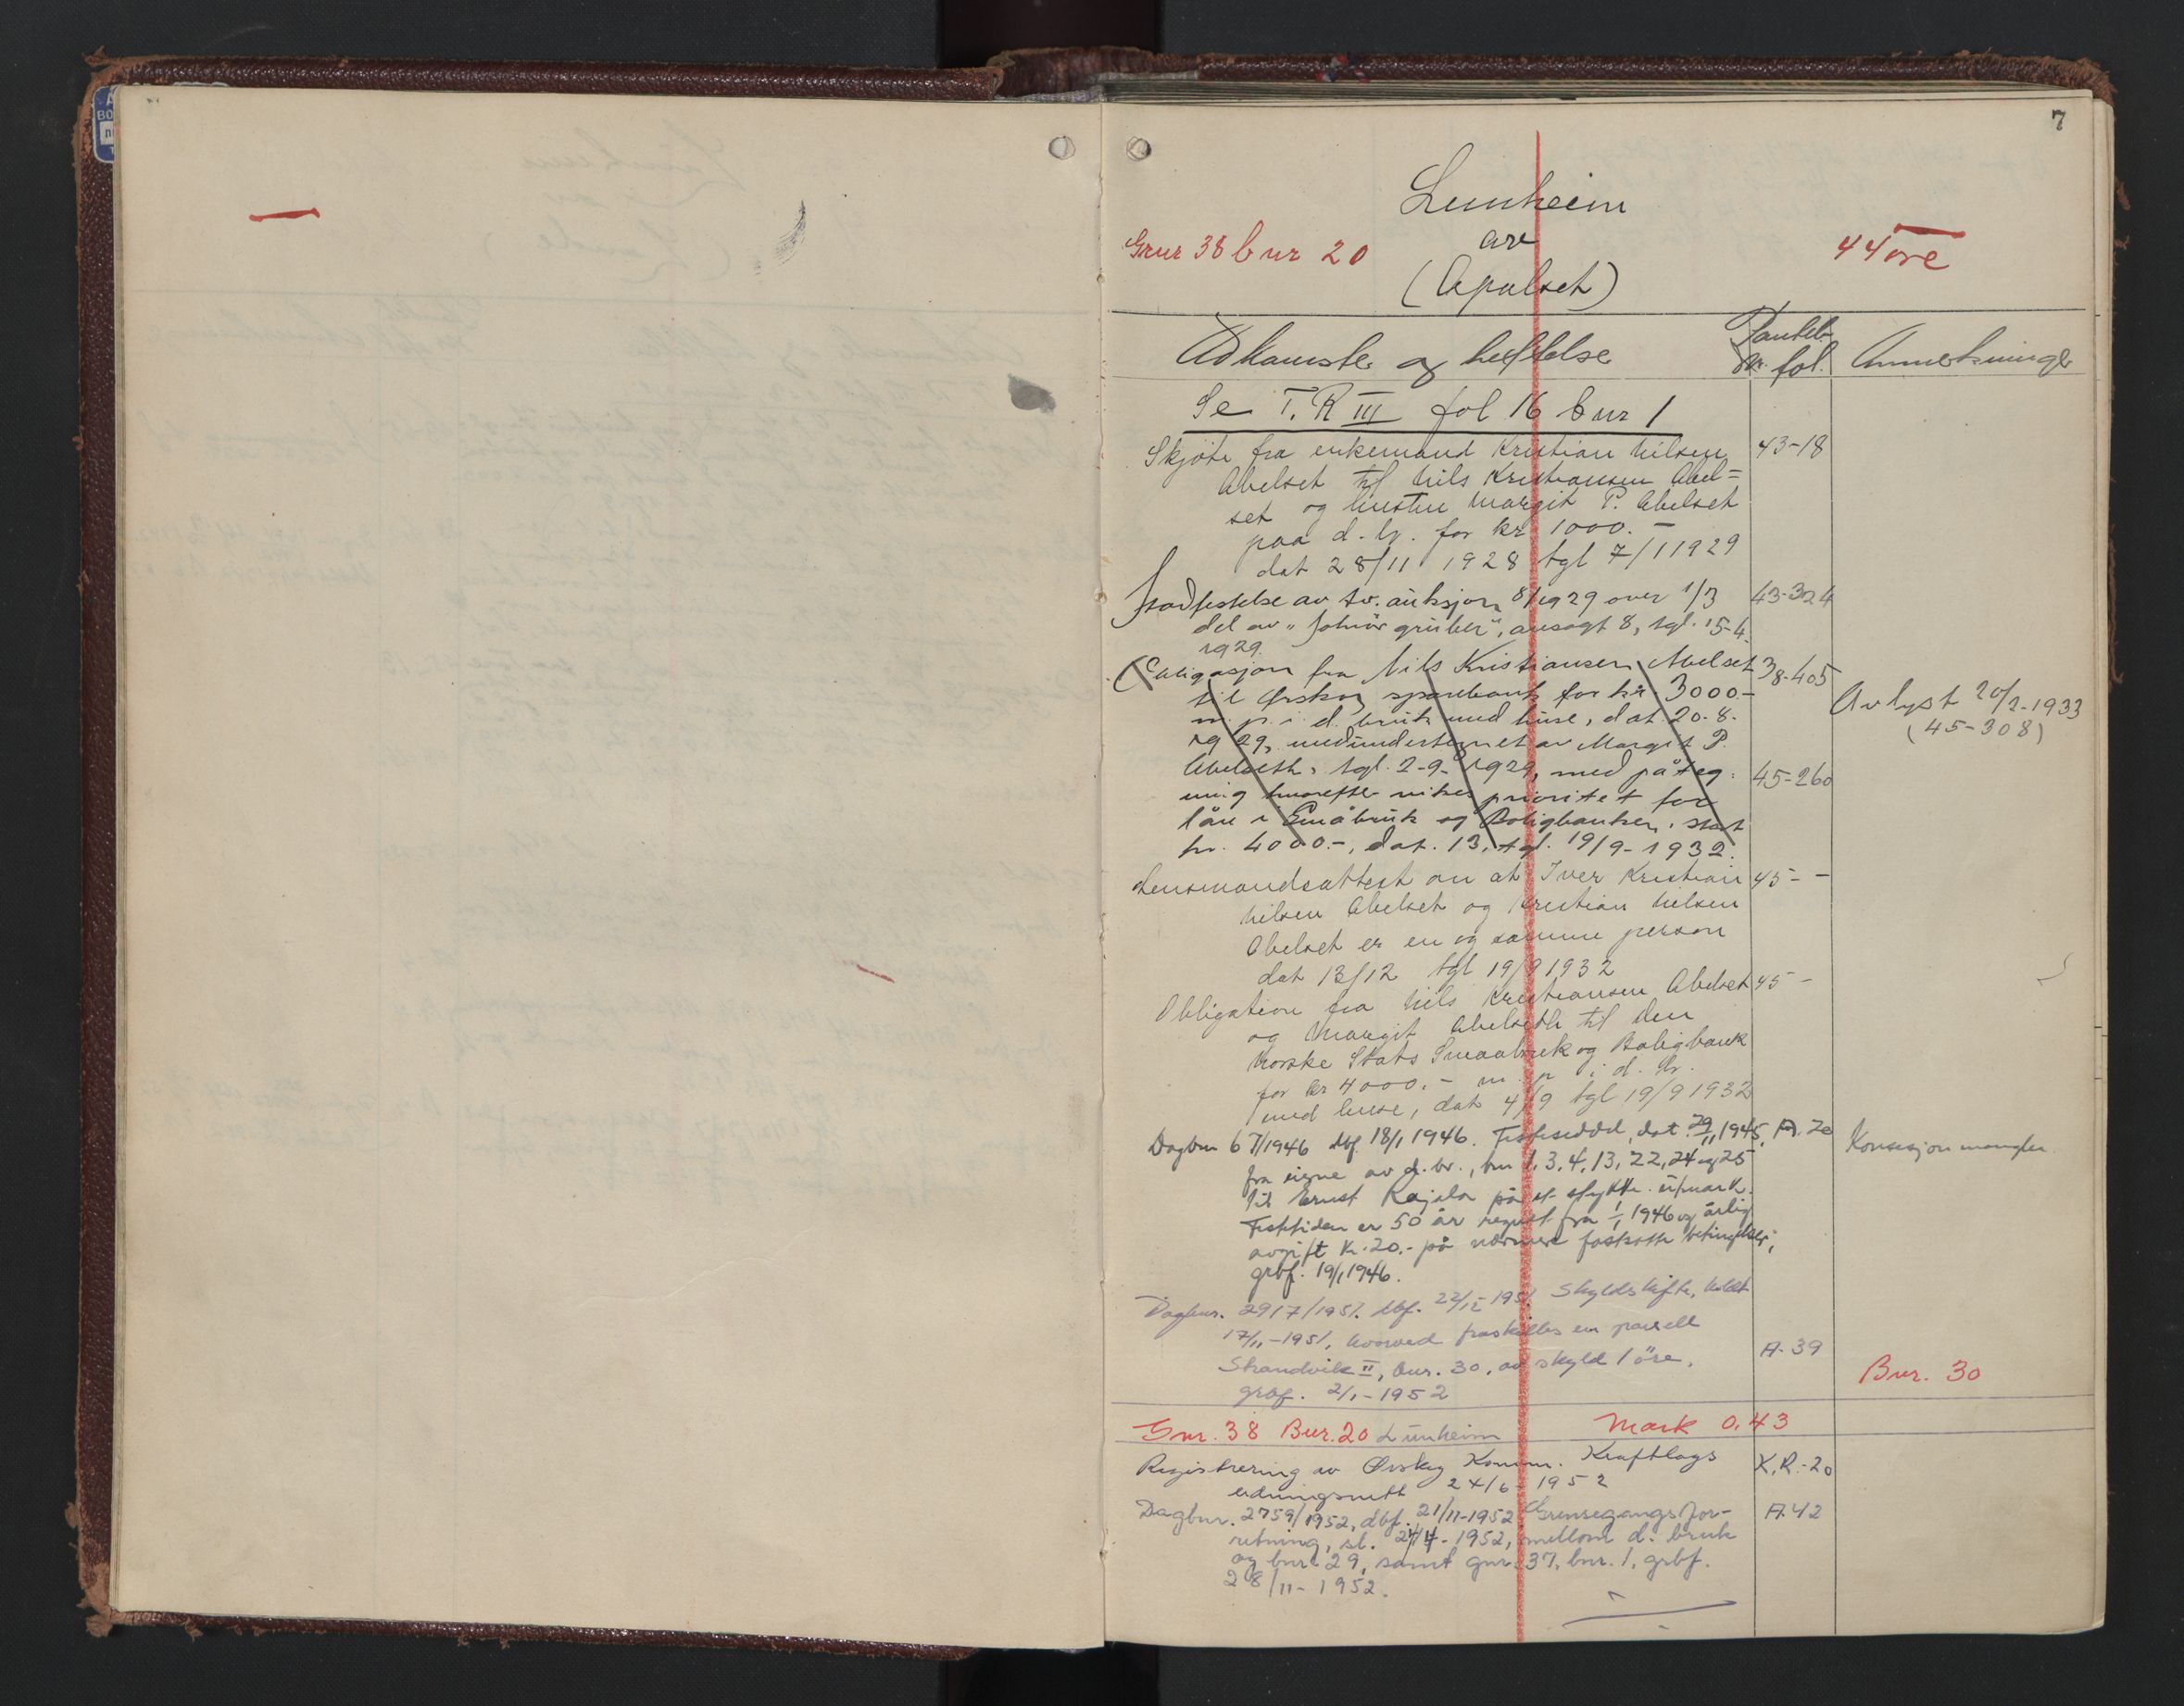 7
Lunheim
Gnr 38 bnr 20
av
44 øre
(Apalset)
Adkomster og heftelse
Panteb. Nr. fol.
Anmerkninger
Se T. R III fol 16 bnr 1
Skjøte fra enkemand Kristian Nilsen 43-18
Abelset til Nils Kristiansen Abel=
set og hustru Margit P. Abelset
paa d. br. for kr 1000.-
dat 28/11 1928 tgl 7/1 1929
Stadfestelse av tv. auksjon 8/1929 over 1/3 43-324
del av gruber", ansagt 8, tgl. 15-4.
1929.
Obligasjon fra Nils Kristiansen Abelset 38-405
til Ørskog sparebank for kr. 3000.-
m. p. i d. bruk med huse, dat. 20-8-
1929, medunderteg­net av Margit P.
Abelseth, tgl. 2-9-1929, med påteg-
ning hvorefter viker prioritet for
lån i Småbruk og Boligbanken, stort
kr. 4000.-, dat. 13, tgl. 19/9-1932.
Avlyst 20/2-1933
(45-308)
45-260
Lensmandsattest om at Iver Kristian 45- -
Nilsen Abelset og Kristian Nilsen
Abelset er en og samme person
dat 13/12 tgl 19/9 1932
Obligation fra Nils Kristiansen Abelset 45 -
og Margit Abelseth til Den
Norske Stats Smaabruk og Boligbank
for kr 4000.- m. p. i d. br.
med huse, dat 4/9 tgl 19/9 1932
Dagbnr 67/1946 dbf. 18/1 1946. Festeseddel, dat. 29/11 1945, A. 20
fra eigne av d. br., bnr 1, 3, 4, 13, 22, 24 og 25
til Ernst på et stykke utmark.
Festetiden er 50 år regnet fra 1/1 1946 og årlig
avgift kr. 20.- på nærmere fastsatte betingelser,
grbf. 19/1 1946.
Konsesjon mangler
Dagbnr. 2917/1951. dbf. 22/12-1951. Skyldskifte, holdt
17/11-1951, hvorved fraskilles en parsell
Strandvik II, bnr. 30, av skyld 1 öre,
grbf. 2/1-1952
A. 39
Bnr. 30
Gnr. 38 Bnr. 20 Lunheim Mark 0,43
Registrering av Ørskog Komm. Kraftlags X.R.-20
ledningsnett 24/6-1952
Dagbnr. 2759/1952, dbf. 21/11-1952 Grensegangsfor- A. 42
retning, sl. 24/4-1952, mellom d. bruk
og bnr. 29, samt gnr. 37, bnr. 1, grbf.
28/11-1952.